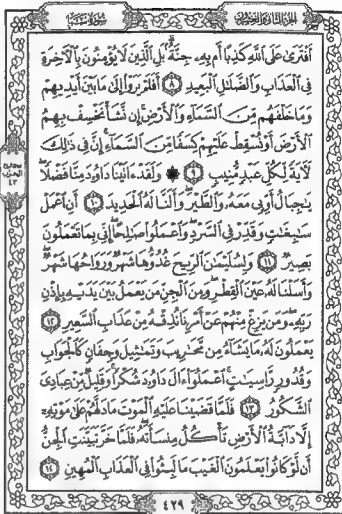 الجزء الثاني والعشرون
سورة سبأ
أَفْتَرَىٰ عَلَى ٱللَّهِ كَذِبًا أَم بِهِۦ جِنَّةٌۢ بَلِ ٱلَّذِينَ لَا يُؤْمِنُونَ بِٱلْءَاخِرَةِ
فِى ٱلْعَذَابِ وَٱلضَّلَٰلِ ٱلْبَعِيدِ ٨ أَفَلَمْ يَرَوْا۟ إِلَىٰ مَا بَيْنَ أَيْدِيهِمْ
وَمَا خَلْفَهُم مِّنَ ٱلسَّمَآءِ وَٱلْأَرْضِ إِن نَّشَأْ نَخْسِفْ بِهِمُ
ٱلْأَرْضَ أَوْ نُسْقِطْ عَلَيْهِمْ كِسَفًا مِّنَ ٱلسَّمَآءِ إِنَّ فِى ذَٰلِكَ
لَءَايَةً لِّكُلِّ عَبْدٍ مُّنِيبٍ ٩ وَلَقَدْ ءَاتَيْنَا دَاوُۥدَ مِنَّا فَضْلًا
يَٰجِبَالُ أَوِّبِى مَعَهُۥ وَٱلطَّيْرَ وَأَلَنَّا لَهُ ٱلْحَدِيدَ ١٠ أَنِ ٱعْمَلْ
سَٰبِغَٰتٍ وَقَدِّرْ فِى ٱلسَّرْدِ وَٱعْمَلُوا۟ صَٰلِحًا إِنِّى بِمَا تَعْمَلُونَ
بَصِيرٌ ١١ وَلِسُلَيْمَٰنَ ٱلرِّيحَ غُدُوُّهَا شَهْرٌ وَرَوَاحُهَا شَهْرٌ
وَأَسَلْنَا لَهُۥ عَيْنَ ٱلْقِطْرِ وَمِنَ ٱلْجِنِّ مَن يَعْمَلُ بَيْنَ يَدَيْهِ بِإِذْنِ
رَبِّهِۦ وَمَن يَزِغْ مِنْهُمْ عَنْ أَمْرِنَا نُذِقْهُ مِنْ عَذَابِ ٱلسَّعِيرِ ١٢
يَعْمَلُونَ لَهُۥ مَا يَشَآءُ مِن مَّحَٰرِيبَ وَتَمَٰثِيلَ وَجِفَانٍ كَٱلْجَوَابِ
وَقُدُورٍ رَّاسِيَٰتٍ ٱعْمَلُوٓا۟ ءَالَ دَاوُۥدَ شُكْرًا وَقَلِيلٌ مِّنْ عِبَادِىَ
ٱلشَّكُورُ ١٣ فَلَمَّا قَضَيْنَا عَلَيْهِ ٱلْمَوْتَ مَا دَلَّهُمْ عَلَىٰ مَوْتِهِۦٓ
إِلَّا دَآبَّةُ ٱلْأَرْضِ تَأْكُلُ مِنسَأَتَهُۥ فَلَمَّا خَرَّ تَبَيَّنَتِ ٱلْجِنُّ
أَن لَّوْ كَانُوا۟ يَعْلَمُونَ ٱلْغَيْبَ مَا لَبِثُوا۟ فِى ٱلْعَذَابِ ٱلْمُهِينِ ١٤
٤٢٩
الحزب
٤٣